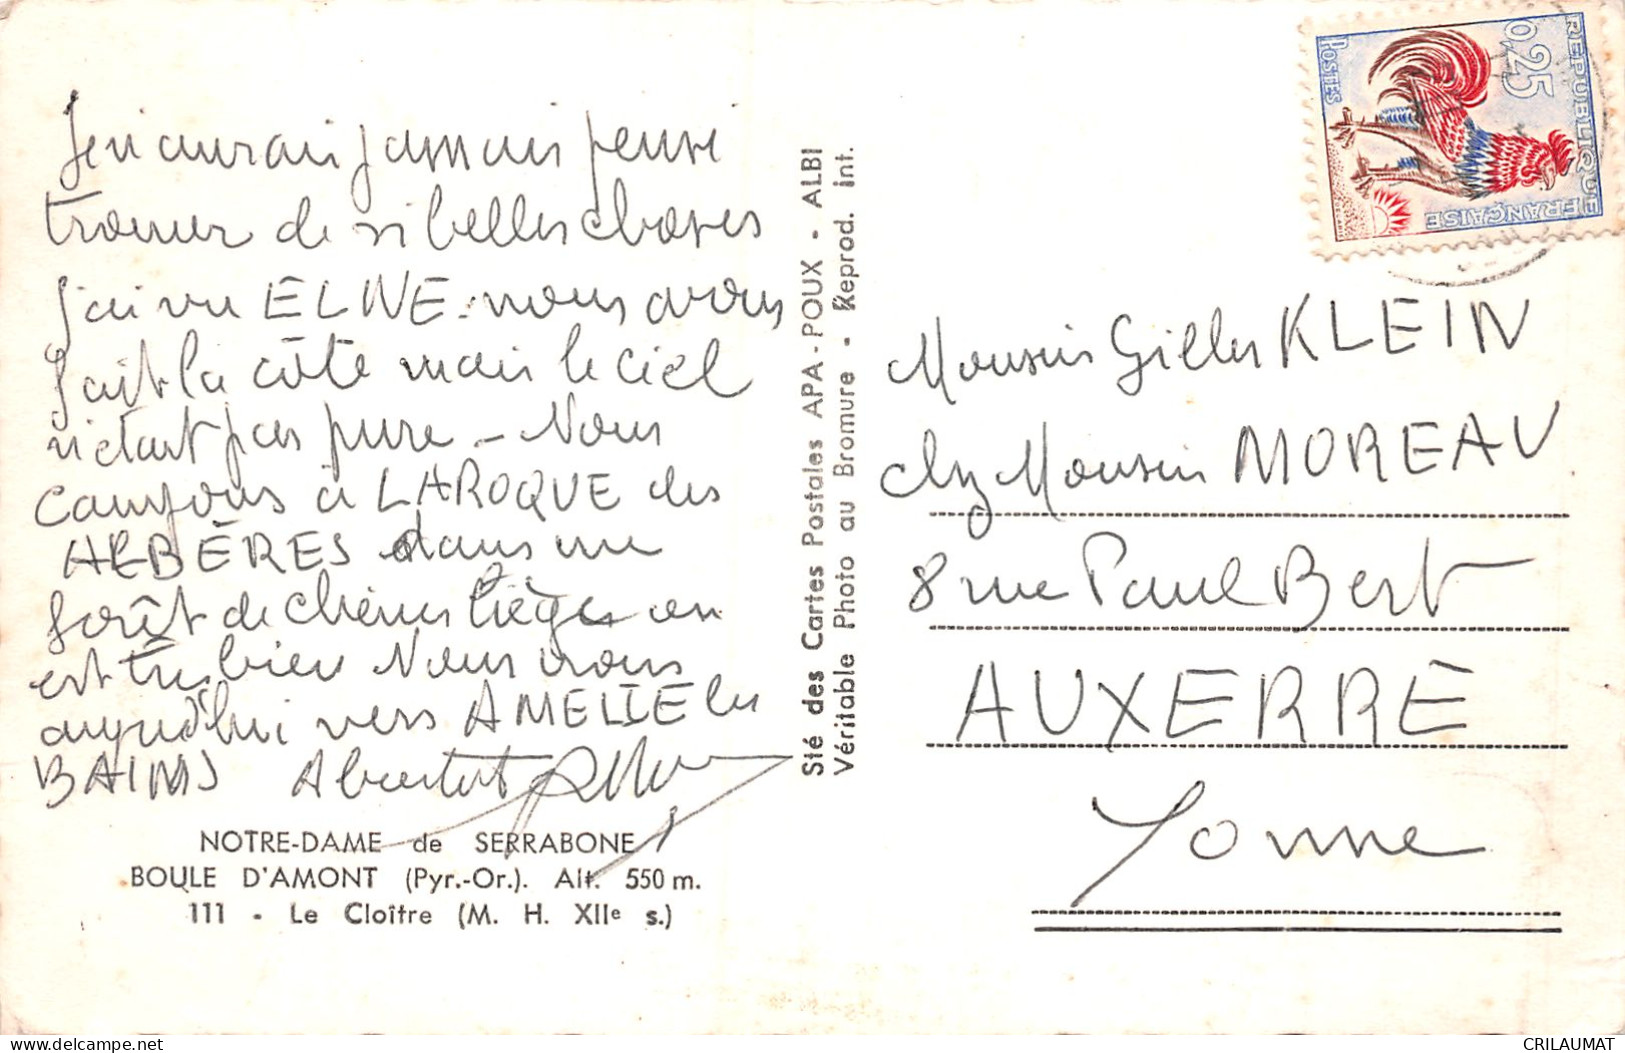 Je n'aurais jamais pensé
trouver de si belles choses
J'ai vu ELNE. nous avons
fait la côte mais le ciel
n'était pas pure - Nous
campons à LAROQUE des
ALBÈRES dans une
forêt de chênes lièges on
est très bien Nous irons
aujourd'hui vers AMELIE les
BAINS A bientôt
NOTRE-DAME de SERRABONE
BOULE D'AMONT (Pyr.-Or.). Alt. 550 m.
111 - Le Cloître (M. H. XIIe s.)
Sté des Cartes Postales APA-POUX - ALBI
Véritable Photo au Bromure - Reprod. int.
REPUBLIQUE
FRANÇAISE
0,25
POSTES
Monsieur Gilles KLEIN
chez Monsieur MOREAU
8 rue Paul Bert
AUXERRE
Yonne
CRILAUMAT